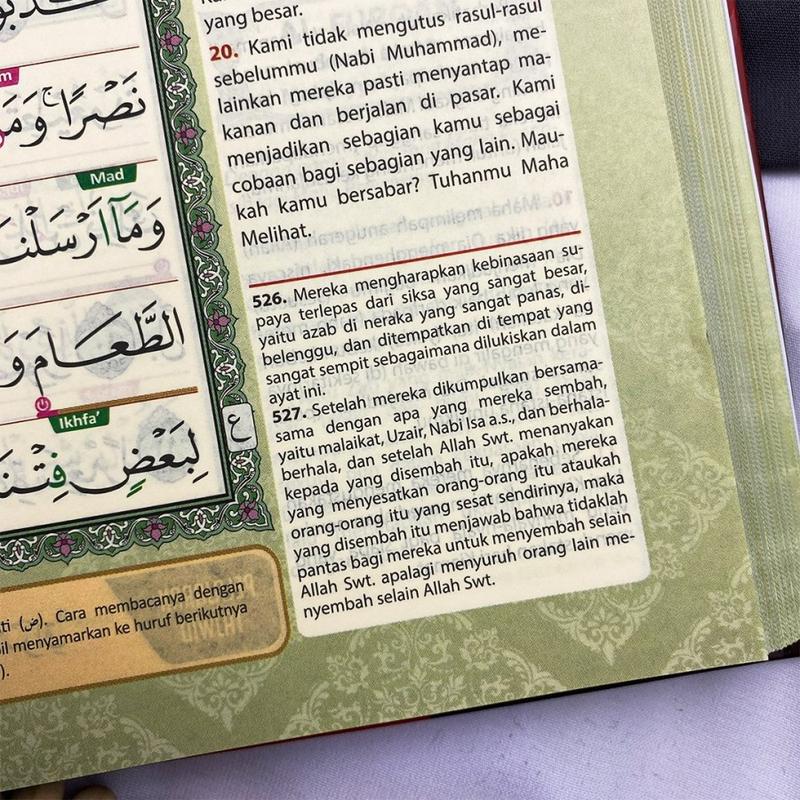 yang besar.
20. Kami tidak mengutus rasul-rasul
sebelummu (Nabi Muhammad), me-
lainkan mereka pasti menyantap ma-
kanan dan berjalan di pasar. Kami
menjadikan sebagian kamu sebagai
cobaan bagi sebagian yang lain. Mau-
kah kamu bersabar? Tuhanmu Maha
Melihat.
526. Mereka mengharapkan kebinasaan su-
paya terlepas dari siksa yang sangat besar,
yaitu azab di neraka yang sangat panas, di-
belenggu, dan ditempatkan di tempat yang
sangat sempit sebagaimana dilukiskan dalam
ayat ini.
527. Setelah mereka dikumpulkan bersama-
sama dengan apa yang mereka sembah,
yaitu malaikat, Uzair, Nabi Isa a.s., dan berhala-
berhala, dan setelah Allah Swt. menanyakan
kepada yang disembah itu, apakah mereka
yang menyesatkan orang-orang itu ataukah
orang-orang itu yang sesat sendirinya, maka
yang disembah itu menjawab bahwa tidaklah
pantas bagi mereka untuk menyembah selain
Allah Swt. apalagi menyuruh orang lain me-
nyembah selain Allah Swt.
نَصْرًاۚ وَمَ
Mad
وَمَآ اَرْسَلْنَ
الطَّعَامَ وَ
Ikhfa'
لِبَعْضٍ فِتْنَ
ع
(ض). Cara membacanya dengan
menyamarkan ke huruf berikutnya
).